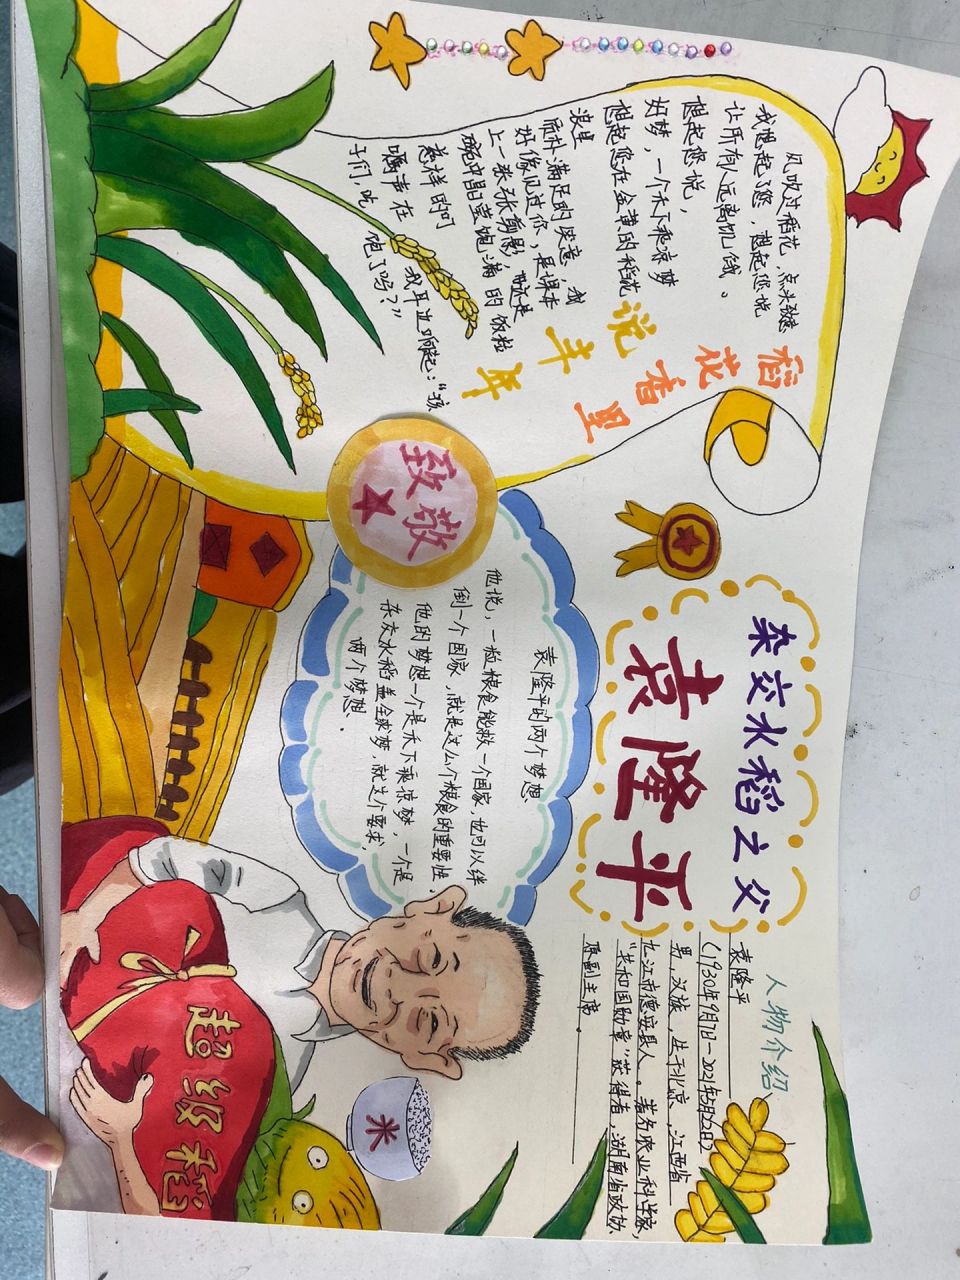 杂交水稻之父
袁隆平
稻花香里
说丰年
风吹过稻花,点头致意
我想起了您,想起您说
让所有人远离饥饿。
想起您说,
好梦,一个禾下乘凉梦
想起您在金黄的稻
浪里
质朴满足的笑意,我
好像见过你,是课本
上一张张剪影,
碗中晶莹饱满的饭粒
慈祥的叮
嘱声在我耳边响起:“孩
子们,吃饱了吗?”
致敬
袁隆平的两个梦想
他说,一粒粮食能救一个国家,也可以绊
倒一个国家,就是这么个粮食的重要性,
他的梦想一个是禾下乘凉梦,一个是
杂交水稻盖全球梦,就这个要求,
两个梦想.
人物介绍
袁隆平
(1930年9月7日—2021年5月22日)
男,汉族,生于北京,江西省
九江市德安县人。著名农业科学家,
“共和国勋章”获得者,湖南省政协
原副主席。
米
超级稻